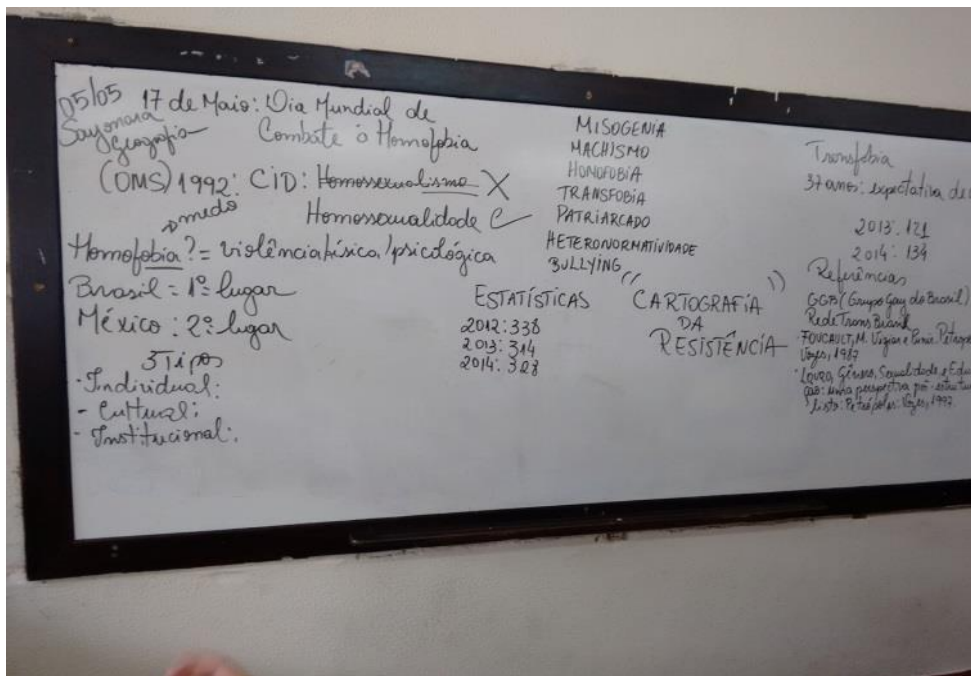 05/05 17 de Maio: Dia Mundial de
Sayonara Combate à Homofobia
Geografia
(OMS) 1992: CID: Homossexualismo X
Homossexualidade
medo
Homofobia? = violência física/psicológica
Brasil = 1º lugar
México : 2º lugar
3 Tipos
· Individual:
- Cultural:
- Institucional:
MISOGENIA
MACHISMO
HONOFOBIA
TRANSFOBIA
PATRIARCADO
HETERONORMATIVIDADE
BULLYING
ESTATÍSTICAS
2012: 338
2013: 314
2014: 328
"CARTOGRAFIA
DA
RESISTÊNCIA"
Transfobia
37 anos: expectativa de
2013: 121
2014: 134
Referências
GGB (Grupo Gay do Brasil)
Rede Trans Brasil
FOUCAULT, M. Vigiar e Punir. Petrópo
Vozes, 1987
Louro, Gênero, Sexualidade e Edu
ção: uma perspectiva pós-estrutu
lista: Petrópolis: Vozes, 1997